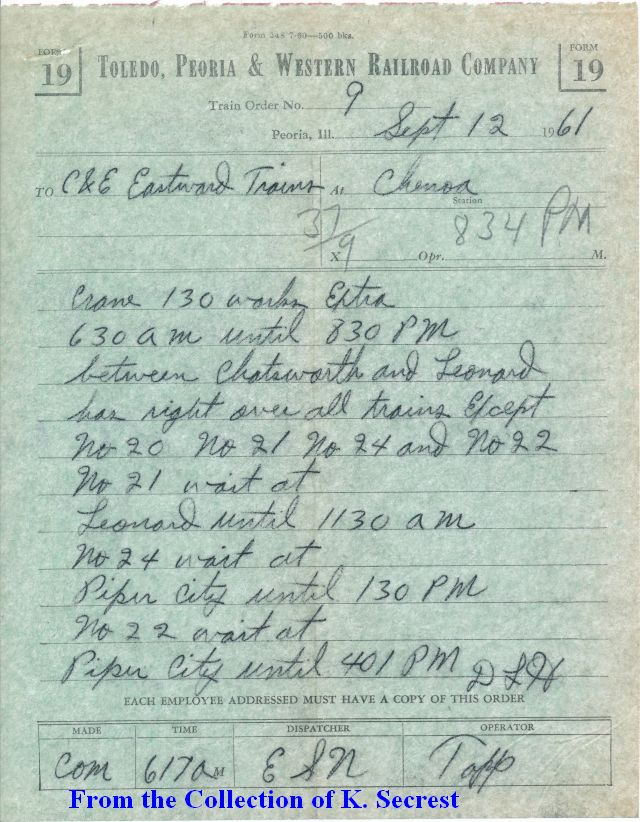 Form 248 7-60—500 bks.
FORM 19 TOLEDO, PEORIA & WESTERN RAILROAD COMPANY FORM 19
Train Order No. 9
Peoria, Ill. Sept 12 1961
TO C&E Eastward Trains At Chenoa
Station
37/9 834 PM
X Opr. M.
Crane 130 works Extra
630 am until 830 PM
between Chatsworth and Leonard
has right over all trains Except
No 20 No 21 No 24 and No 22
No 21 wait at
Leonard until 1130 am
No 24 wait at
Piper City until 130 PM
No 22 wait at
Piper City until 401 PM DLH
EACH EMPLOYEE ADDRESSED MUST HAVE A COPY OF THIS ORDER
MADE TIME DISPATCHER OPERATOR
Com 617a M ESN Tapp
From the Collection of K. Secrest